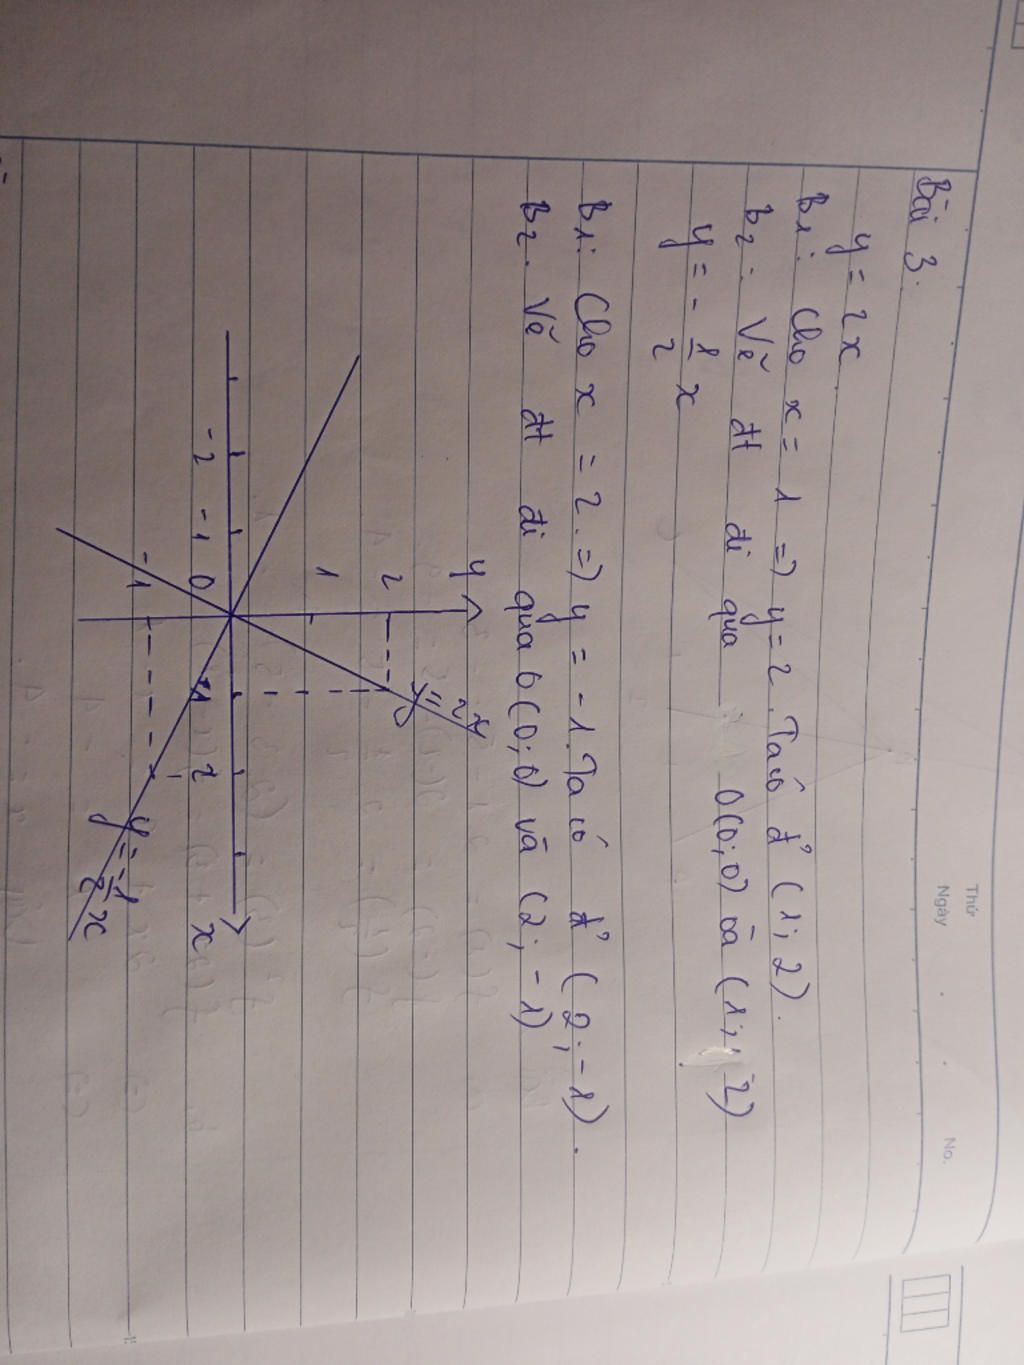 Thứ
Ngày
No.
Bài 3.
y = 2x
B1: Cho x = 1 => y = 2. Ta có đ' (1; 2).
B2: Vẽ đt đi qua O(0; 0) và (1; 2)
y = - 1/2 x
B1: Cho x = 2. => y = - 1. Ta có đ' (2; - 1).
B2. Vẽ đt đi qua O(0; 0) và (2; - 1)
y
y = 2x
2
1
-2 -1 0 1 2 x
-1
y = - 1/2 x